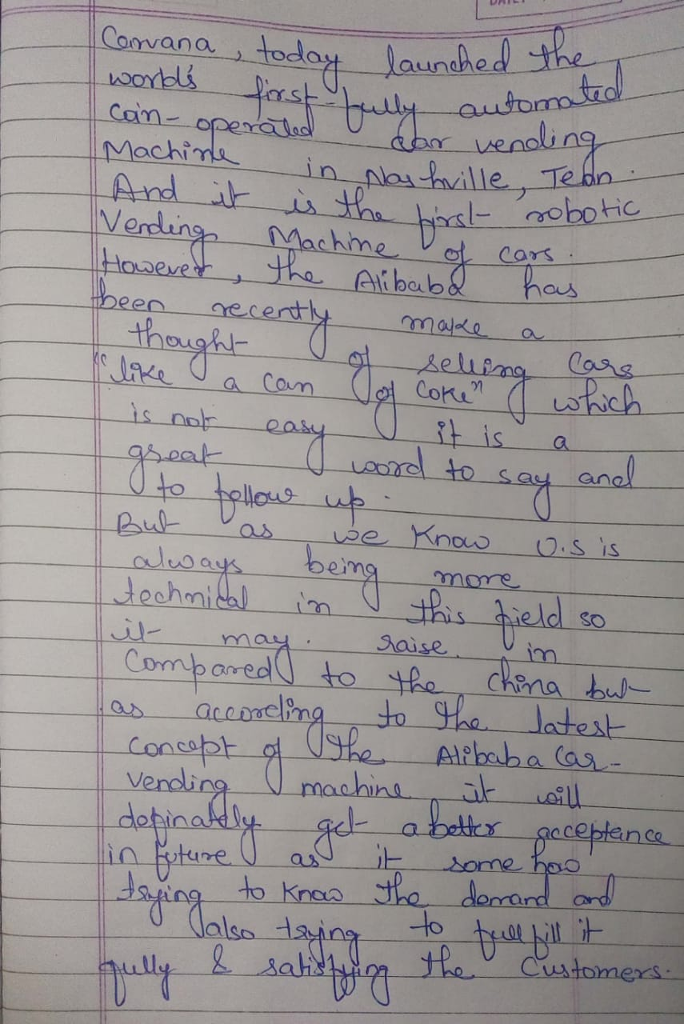 Carvana, today launched the
world's first-fully automated
coin-operated car vending
Machine in Nashville, Tenn.
And it is the first robotic
Vending Machine of cars.
However, the Alibaba has
been recently make a
thought of selling cars
"like a can of coke" which
is not easy it is a
great word to say and
to follow up.
But as we know U.S is
always being more
technical in this field so
it may. raise. in
Compared to the china but
as according to the latest
concept of the Alibaba Car-
vending machine it will
definately get a better acceptance
in future as it some how
trying to know the demand and
also trying to full fill it
fully & satisfying the Customers.